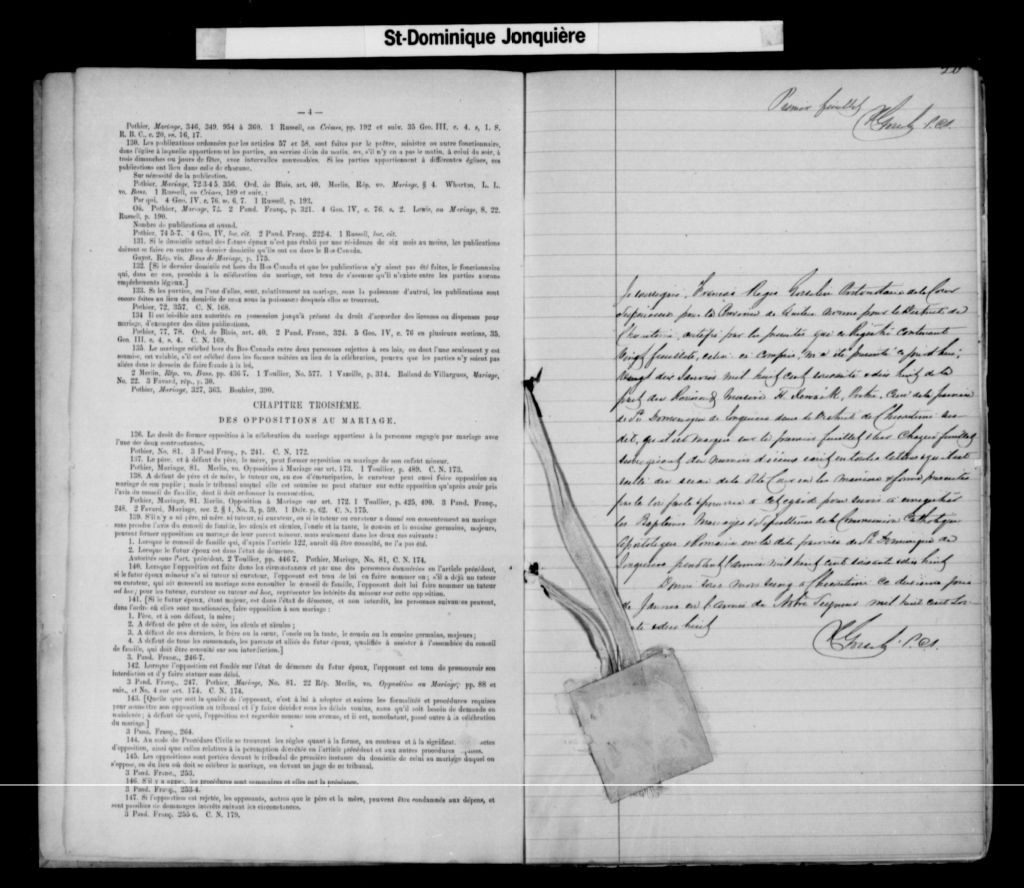 St-Dominique Jonquière
— 4 —
Pothier, Mariage, 346, 349, 354 à 360. 1 Russell, on Crimes, pp. 192 et suiv. 35 Geo. III, c. 4, s. 1. S.
R. B. C., c. 20, ss. 16, 17.
130. Les publications ordonnées par les articles 57 et 58, sont faites par le prêtre, ministre ou autre fonctionnaire,
dans l'église à laquelle appartiennent les parties, au service divin du matin, ou, s'il n'y en a pas le matin, à celui du soir, à
trois dimanches ou jours de fête, avec intervalles convenables. Si les parties appartiennent à différentes églises, ces
publications ont lieu dans celle de chacune.
Sur nécessité de la publication.
Pothier, Mariage, 72-3-4-5, 356. Ord. de Blois, art. 40. Merlin, Rép. vo. Mariage, § 4. Wharton, L. L.
vo. Bans. 1 Russell, on Crimes, 189 et suiv. :
Par qui. 4 Geo. IV, c. 76, ss. 6, 7. 1 Russell, p. 193.
Où. Pothier, Mariage, 72. 2 Pand. Franç., p. 321. 4 Geo. IV, c. 76, s. 2. Lewis, on Mariage, 8, 22.
Russell, p. 190.
Nombre de publications et quand.
Pothier, 74 5-7. 4 Geo. IV, loc. cit. 2 Pand. Franç. 222-4. 1 Russell, loc. cit.
131. Si le domicile actuel des futurs époux n'est pas établi par une résidence de six mois au moins, les publications
doivent se faire en outre au dernier domicile qu'ils ont eu dans le Bas Canada.
Guyot, Rép. vis. Bans de Mariage, p. 175.
132. [Si le dernier domicile est hors du Bas Canada et que les publications n'y aient pas été faites, le fonctionnaire
qui, dans ce cas, procède à la célébration du mariage, est tenu de s'assurer qu'il n'existe entre les parties aucuns
empêchements légaux.]
133. Si les parties, ou l'une d'elles, sont, relativement au mariage, sous la puissance d'autrui, les publications sont
encore faites au lieu du domicile de ceux sous la puissance desquels elles se trouvent.
Pothier, 72, 357. C. N. 168.
134 Il est loisible aux autorités en possession jusqu'à présent du droit d'accorder des licences ou dispenses pour
mariage, d'exempter des dites publications.
Pothier, 77, 78. Ord. de Blois, art. 40. 2 Pand. Franç. 324. 5 Geo. IV, c. 76 en plusieurs sections, 35,
Geo. III, c. 4, s. 4. C. N. 169.
135. Le mariage célébré hors du Bas Canada entre deux personnes sujettes à ses lois, ou dont l'une seulement y est
soumise, est valable, s'il est célébré dans les formes usitées au lieu de la célébration, pourvu que les parties n'y soient pas
allées dans le dessein de faire fraude à la loi.
2 Merlin, Rép. vo. Bans, pp. 436-7. 1 Toullier, No. 577. 1 Vazeille, p. 314. Rolland de Villargues, Mariage,
No. 22. 3 Favard, rép., p. 30.
Pothier, Mariage, 327, 363. Bouhier, 390.
CHAPITRE TROISIÈME.
DES OPPOSITIONS AU MARIAGE.
126. Le droit de former opposition à la célébration du mariage appartient à la personne engagée par mariage avec
l'une des deux contractantes.
Pothier, No. 81. 3 Pand Franç., p. 241. C. N. 172.
137. Le père, et à défaut du père, la mère, peut former opposition au mariage de son enfant mineur.
Pothier, Mariage, 81. Merlin, vo. Opposition à Mariage sur art. 173. 1 Toullier, p. 489. C. N. 173.
138. A défaut de père et de mère, le tuteur ou, au cas d'émancipation, le curateur peut aussi faire opposition au
mariage de son pupile ; mais le tribunal auquel elle est soumise ne peut statuer sur cette opposition qu'après avoir pris
l'avis du conseil de famille, dont il doit ordonner la convocation.
Pothier, Mariage, 81. Merlin, Opposition à Mariage sur art. 172. 1 Toullier, p. 425, 490. 3 Pand. Franç.,
248. 2 Favard, Mariage, sec. 2, § 1, No. 3, p. 59. 1 Delv. p. 62. C. N. 175.
139. S'il n'y a ni père, ni mère, ni tuteur, ni curateur, ou si le tuteur ou curateur a donné son consentement au mariage
sans prendre l'avis du conseil de famille, les aïeuls et aïeules, l'oncle et la tante, le cousin et la cousine germains, majeurs,
peuvent former opposition au mariage de leur parent mineur, mais seulement dans les deux cas suivants :
1. Lorsque le conseil de famille qui, d'après l'article 122, aurait dû être consulté, ne l'a pas été.
2. Lorsque le futur époux est dans l'état de démence.
Autorités sous l'art. précédent. 2 Toullier, pp. 446-7. Pothier, Mariage, No. 81, C. N. 174.
140. Lorsque l'opposition est faite dans les circonstances et par une des personnes énumérées en l'article précédent,
si le futur époux mineur n'a ni tuteur ni curateur, l'opposant est tenu de lui en faire nommer un ; s'il a déjà un tuteur
ou curateur, qui ait consenti au mariage sans consulter le conseil de famille, l'opposant doit lui faire nommer un tuteur
ad hoc ; pour les tuteur, curateur ou tuteur ad hoc, représenter les intérêts du mineur sur cette opposition.
141. [Si le futur époux, étant majeur, est dans l'état de démence, et non interdit, les personnes suivantes peuvent,
dans l'ordre où elles sont mentionnées, faire opposition à son mariage :
1. Père, et à son défaut, la mère ;
2. A défaut de père et de mère, les aïeuls et aïeules ;
3. A défaut de ces derniers, le frère ou la sœur, l'oncle ou la tante, le cousin ou la cousine germains, majeurs ;
4. A défaut de tous les susnommés, les parents et alliés du futur époux, qualifiés à assister à l'assemblée du conseil
de famille, qui doit être consulté sur son interdiction.]
3. Pand. Franç., 246-7.
142. Lorsque l'opposition est fondée sur l'état de démence du futur époux, l'opposant est tenu de promouvoir son
interdiction et d'y faire statuer sans délai.
3 Pand. Franç., 247. Pothier, Mariage, No. 81. 22 Rép. Merlin, vo. Opposition au Mariage, pp. 88 et
suiv., et No. 4 sur art. 174. C. N. 174.
143. [Quelle que soit la qualité de l'opposant, c'est à lui à adopter et suivre les formalités et procédures requises
pour soumettre son opposition au tribunal et l'y faire décider sous les délais voulus, sans qu'il soit besoin de demande en
mainlevée ; à défaut de quoi, l'opposition est regardée comme non avenue, et il est, nonobstant, passé outre à la célébration
du mariage.]
3 Pand. Franç., 264.
144. Au code de Procédure Civile se trouvent les règles quant à la forme, au contenu et à la significat. actes
d'opposition, ainsi que celles relatives à la péremption décrétée en l'article précédent et aux autres procédures
145. Les oppositions sont portées devant le tribunal de première instance du domicile de celui au mariage duquel on
s'oppose, ou du lieu où doit se célébrer le mariage, ou devant un juge de ce tribunal.
3 Pand. Franç., 253.
146. S'il y a appel, les procédures sont sommaires et elles ont la préséance.
3 Pand. Franç., 253-4.
147. Si l'opposition est rejetée, les opposants, autres que le père et la mère, peuvent être condamnés aux dépens, et
sont passibles de dommages intérêts suivant les circonstances.
3 Pand. Franç. 255 6. C. N. 179.
20
Premier feuillet
P. C. S.
Je soussigné, François Régis Gosselin Protonotaire de la Cour
Supérieure pour la Province de Québec nommé pour le District de
Chicoutimi, certifie par les présentes que ce Registre contenant
Vingt feuillets, celui ci compris, m'a été présenté ce jourd'hui,
Vingt deux Janvier mil huit cent soixante et dix huit de la
part du Révérend Messire H. Kéroack, Prêtre, Curé de la paroisse
de St. Dominique de Jonquière dans le District de Chicoutimi sus
dit, qu'il est marqué sur le premier feuillet et sur chaque feuillet
subséquent du numéro d'icelui écrit en toutes lettres et qu'il est
scellé du sceau de la dite Cour en la manière et forme prescrites
par la loi faite et pourvue à cet égard pour servir à enregistrer
les Baptêmes Mariages et Sépultures de la Communion Catholique
Apostolique et Romaine en la dite paroisse de St. Dominique de
Jonquière pendant l'année mil huit cent soixante et dix huit
Donné sous mon seing à Chicoutimi ce deuxième jour
de Janvier en l'année de Notre Seigneur mil huit cent soi-
xante et dix huit
P. C. S.